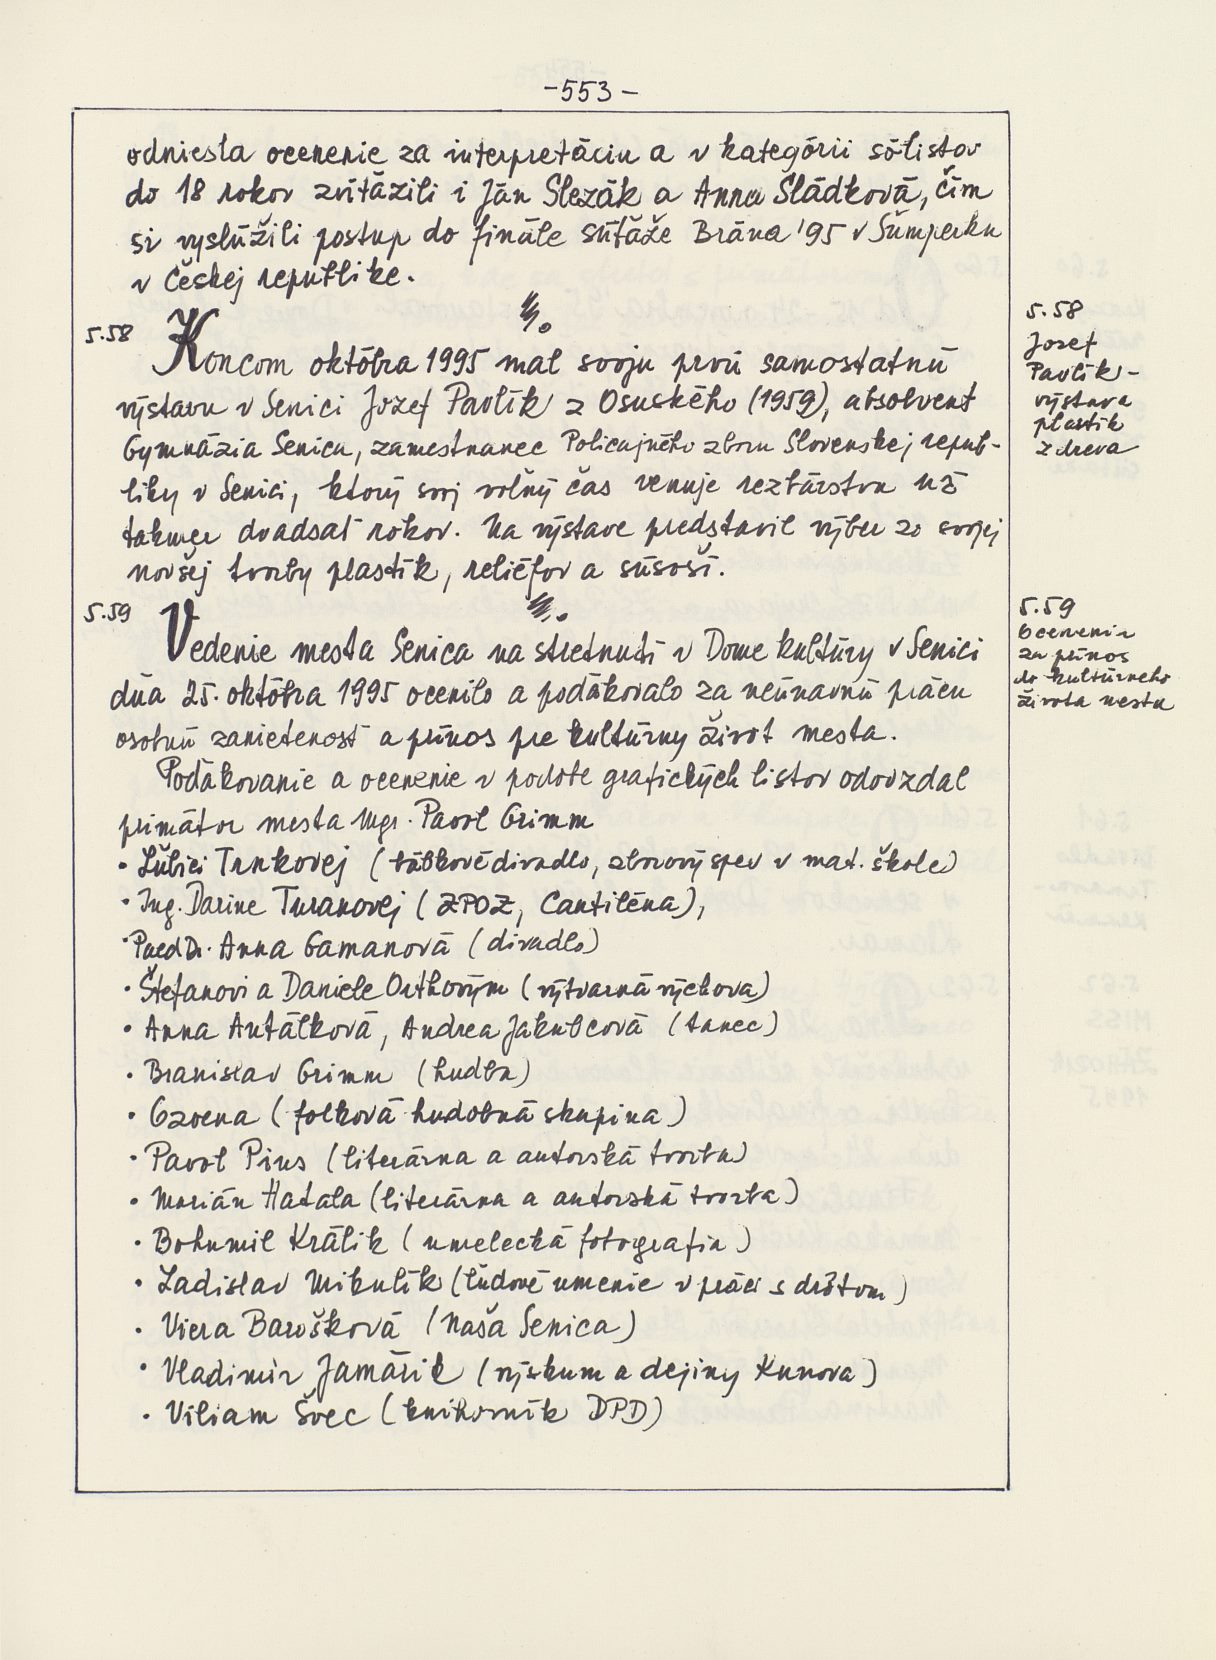 -553-
odniesla ocenenie za interpretáciu a v kategórii sólistov
do 18 rokov zvíťazili i Ján Slezák a Anna Sládková, čím
si vyslúžili postup do finále súťaže Brána '95 v Šumperku
v Českej republike.
5.58 Koncom októbra 1995 mal svoju prvú samostatnú
výstavu v Senici Jozef Pavlík z Osuského (1959), absolvent
Gymnázia Senica, zamestnanec Policajného zboru Slovenskej repub-
liky v Senici, ktorý svoj voľný čas venuje rezbárstvu už
takmer dvadsať rokov. Na výstave predstavil výber zo svojej
novšej tvorby plastík, reliéfov a súsoší.
5.58
Jozef
Pavlík-
výstava
plastík
z dreva
5.59 Vedenie mesta Senica na stretnutí v Dome kultúry v Senici
dňa 25. októbra 1995 ocenilo a poďakovalo za neúnavnú prácu
osobnú zanietenosť a prínos pre kultúrny život mesta.
Poďakovanie a ocenenie v podobe grafických listov odovzdal
primátor mesta Mgr. Pavol Grimm
• Ľubici Trnkovej (bábkové divadlo, zborový spev v mat. škole)
• Ing. Darine Turanovej (ZPOZ, Cantiléna),
• PaedDr. Anna Gamanová (divadlo)
• Štefanovi a Daniele Orthovým (výtvarná výchova)
• Anna Antálková, Andrea Jakubcová (tanec)
• Branislav Grimm (hudba)
• Gzoena (folková hudobná skupina)
• Pavol Pius (literárna a autorská tvorba)
• Marián Hatala (literárna a autorská tvorba)
• Bohumil Králik (umelecká fotografia)
• Ladislav Mikulík (ľudové umenie v práci s drôtom)
• Viera Barošková (Naša Senica)
• Vladimír Jamárik (výskum a dejiny Kunova)
• Viliam Švec (knihovník DPD)
5.59
Ocenenia
za prínos
do kultúrneho
života mesta